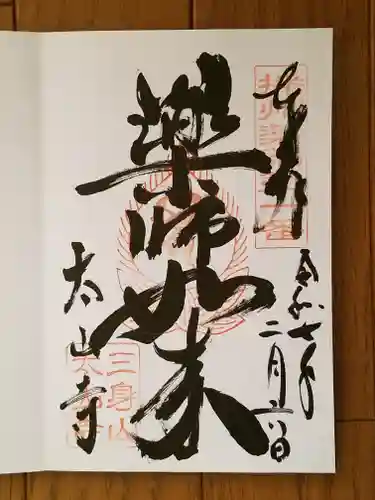 奉拝
令和七年
二月
薬師如来
太山寺
三身山